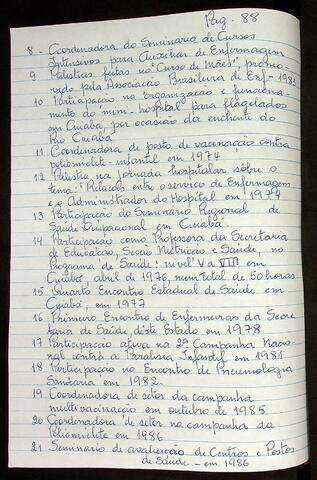 Pag. 88
8 - Coordenadora do Seminário de Cursos
Intensivos para Auxiliar de Enfermagem
9 Palestras feitas no "Curso de Mães", promo-
vido pela Associação Brasileira de Enf - 1981
10 Participação na organização e funciona-
mento do mini-hospital para flagelados
em Cuiabá, por ocasião da enchente do
Rio Cuiabá
11 Coordenadora de posto de vacinação contra
poliomielite-infantil em 1974
12 Palestra na jornada hospitalar sôbre o
tema: "Relações entre o serviço de Enfermagem
e o Administrador do Hospital em 1974
13 Participação do Seminário Regional de
Saúde Ocupacional em Cuiabá
14 Participação como Professora da Secretaria
de Educação, Secão Nutrição e Saúde, no
Programa de Saúde: nível V a VIII em
Cuiabá, abril de 1976, num total de 50 horas
15 Quarto Encontro Estadual de Saúde em
Cuiabá, em 1977
16 Primeiro Encontro de Enfermeiras da Secre
taria de Saúde, dêste Estado em 1978
17 Participação ativa na 2ª Campanha Nacio-
nal contra a Paralisia Infantil em 1981
18 Participação no Encontro de Pneumologia
Sanitaria em 1982.
19 Coordenadora de setor da campanha
multivacinação em outubro de 1985
20 Coordenadora de setor na campanha da
Poliomielite em 1986
21 Seminário de avaliação de Centros e Postos
de Saúde - em 1986